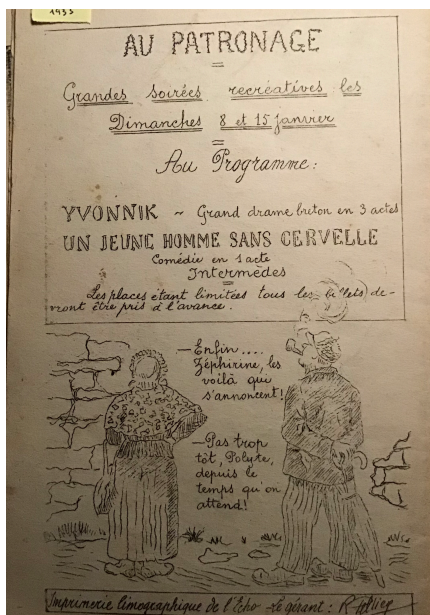 1933
AU PATRONAGE
Grandes soirées recréatives les
Dimanches 8 et 15 janvier
Au Programme:
YVONNIK ~ Grand drame breton en 3 actes
UN JEUNE HOMME SANS CERVELLE
Comédie en 1 acte
Intermèdes
Les places étant limitées tous les billets de-
vront être pris à l'avance.
— Enfin....
Zéphirine, les
voilà qui
s'annoncent!
— Pas trop
tôt, Polyte,
depuis le
temps qu'on
attend!
Imprimerie limographique de l'Echo - Le gérant: R.